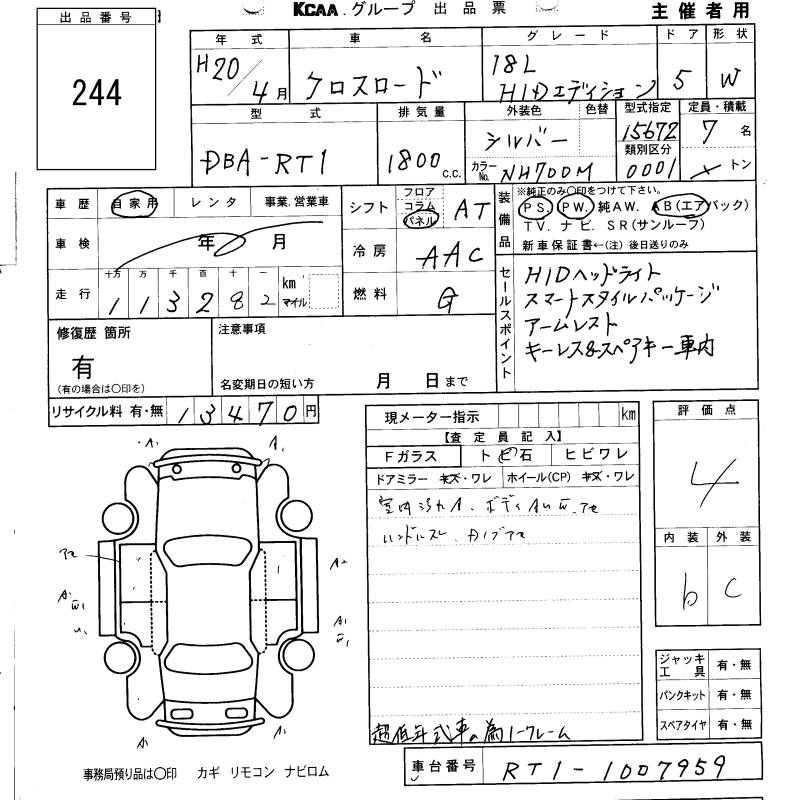 KCAA.グループ 出品票 主催者用
出品番号
244
年式 車名 グレード ドア 形状
H20/4月 クロスロード 18L HIDエディション 5 W
型式 排気量 外装色 色替 型式指定 定員・積載
DBA-RT1 1800c.c. シルバー 15672 7名
カラーNo. NH700M 類別区分 0001 トン
車歴 自家用 レンタ 事業.営業車
シフト フロア コラム パネル AT
装備品 ※純正のみ〇印をつけて下さい。
PS. PW. 純AW. AB(エアバック)
TV. ナビ. SR(サンルーフ)
新車保証書←(注)後日送りのみ
車検 年 月
冷房 AAC
走行 十万 万 千 百 十 一 km マイル
113282
燃料 G
セールスポイント
HIDヘッドライト
スマートスタイルパッケージ
アームレスト
キーレス&スペアキー車内
修復歴 箇所
有
(有の場合は〇印を)
注意事項
名変期日の短い方 月 日まで
リサイクル料 有・無 13470円
現メーター指示 km
【査定員記入】
Fガラス トビ石 ヒビワレ
ドアミラー キズ・ワレ ホイール(CP) キズ・ワレ
ハンドルスレ
超低年式車の為ノークレーム
評価点
4
内装 外装
b C
A1 A1
A2
A1
A1
ジャッキ工具 有・無
パンクキット 有・無
スペアタイヤ 有・無
事務局預り品は〇印 カギ リモコン ナビロム
車台番号 RT1-1007959